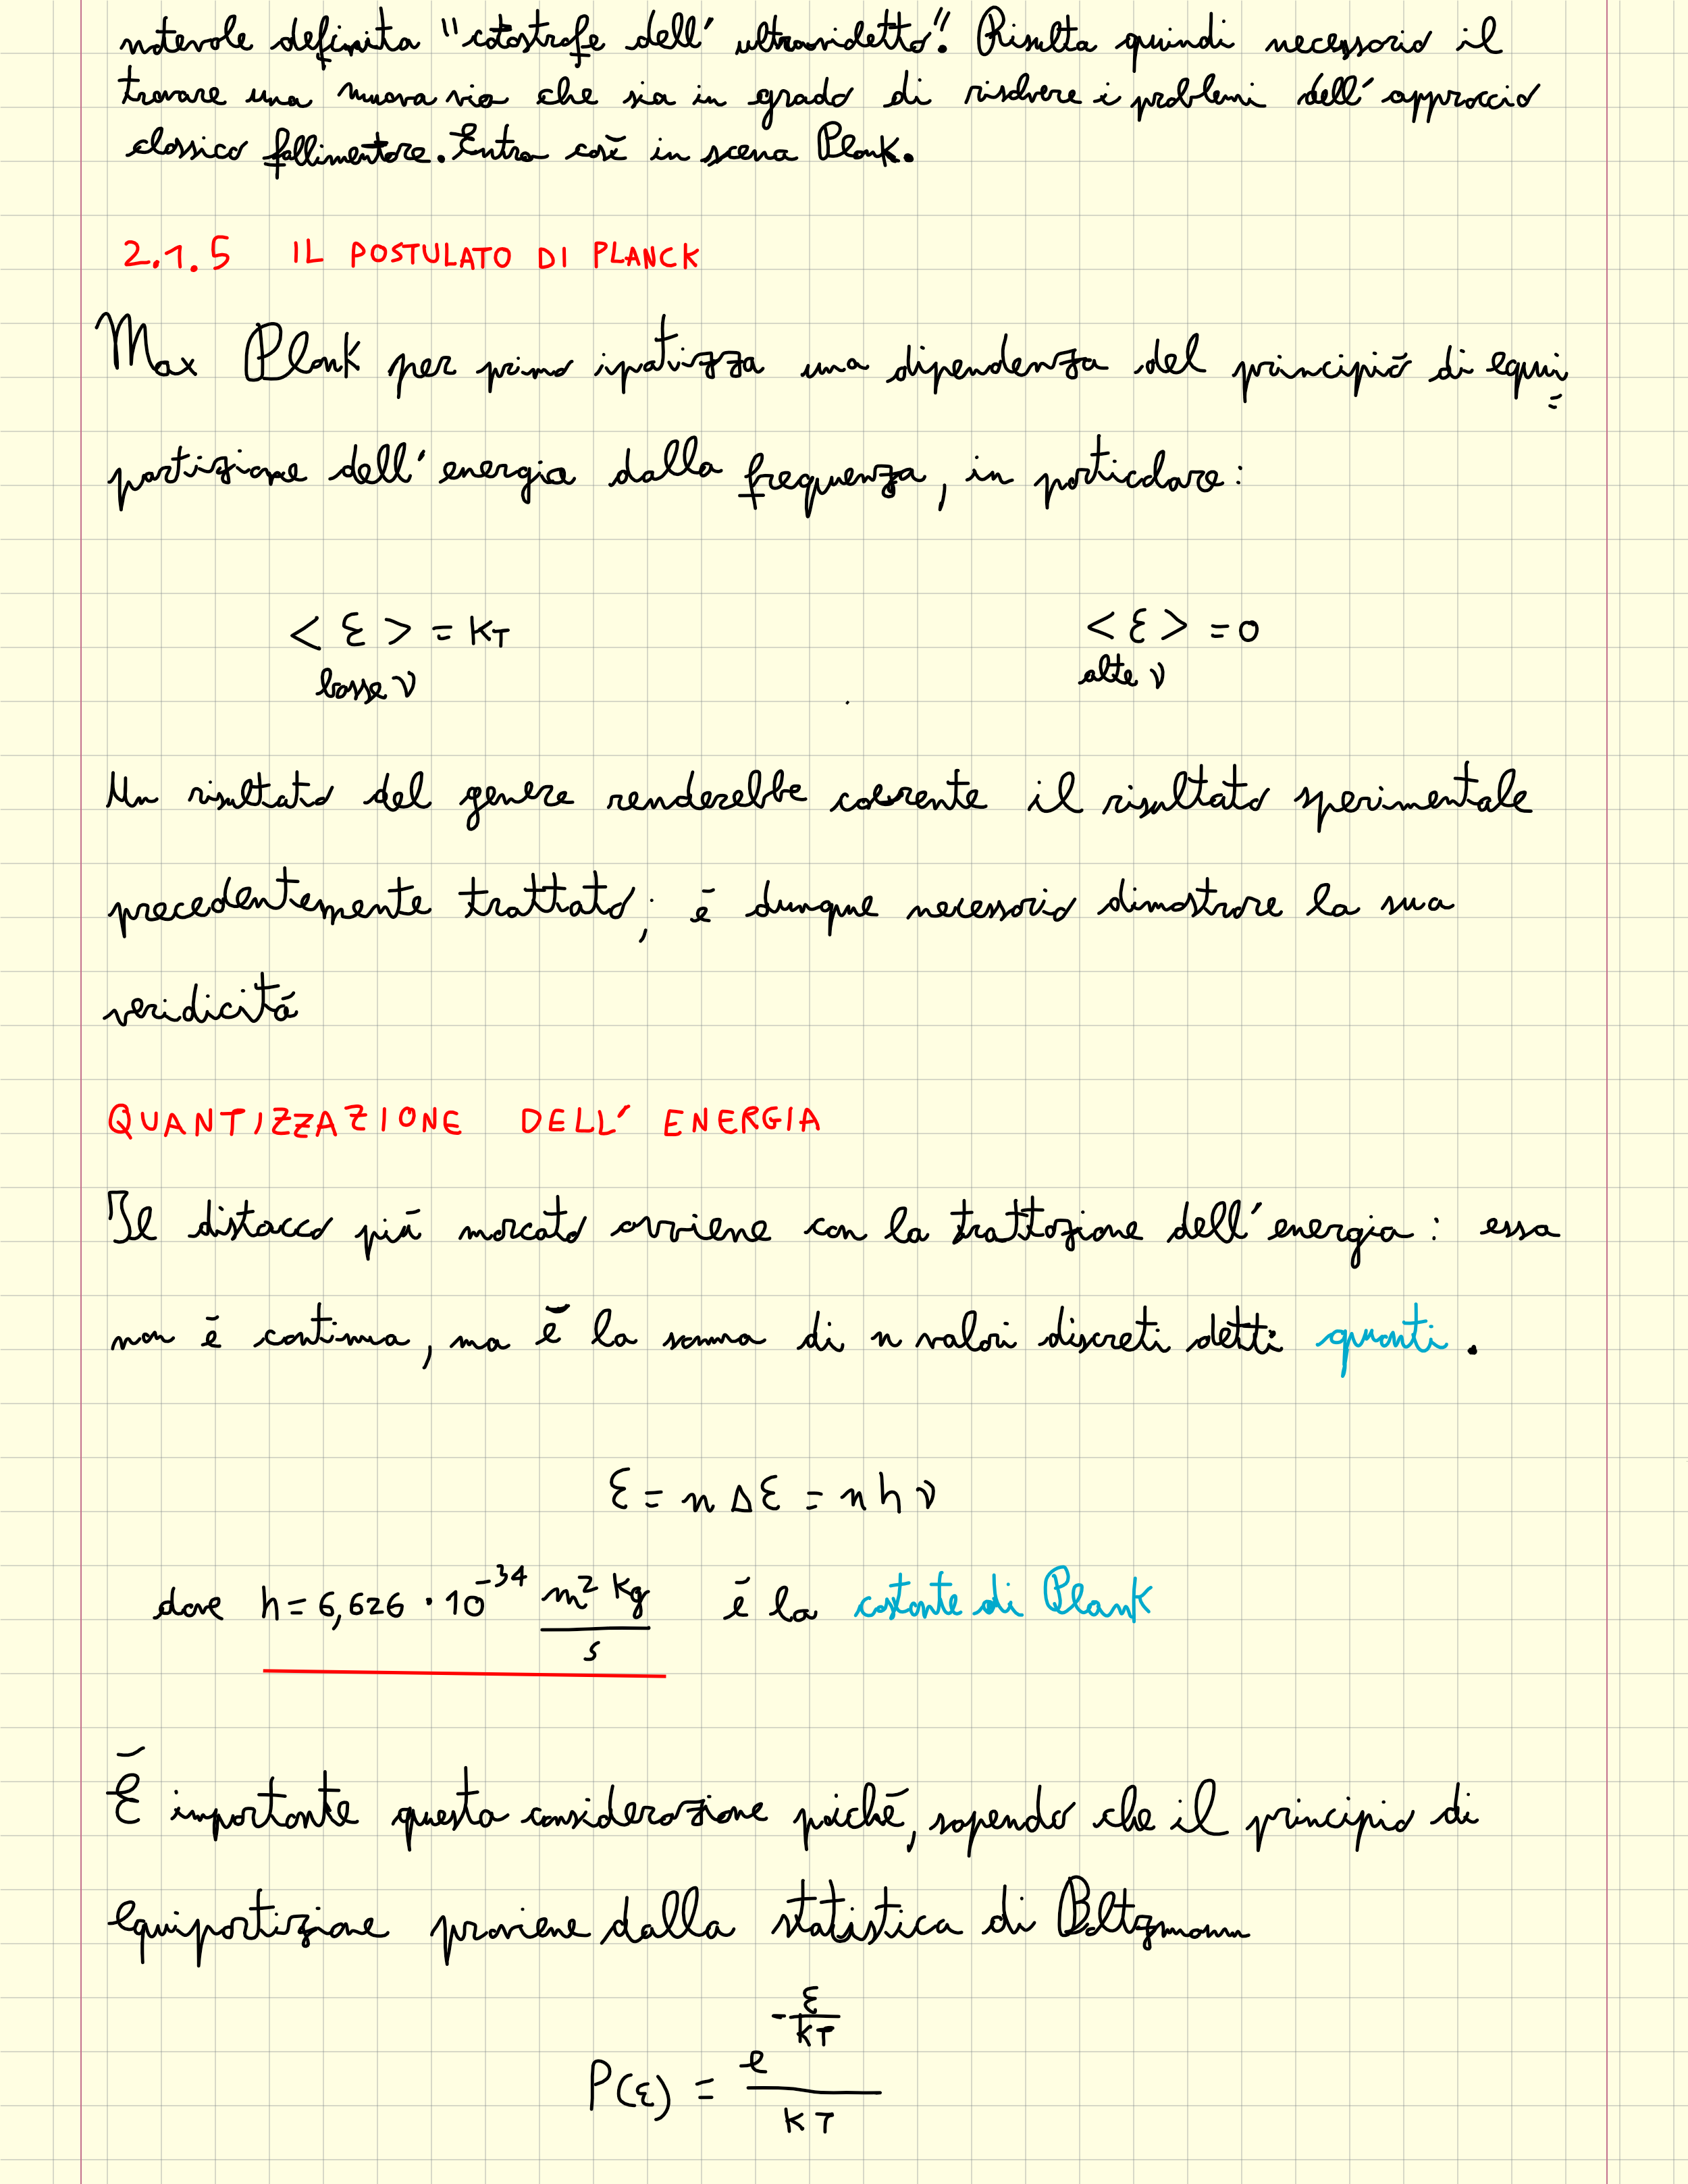 notevole definita "catastrofe dell' ultravioletto". Risulta quindi necessario il
trovare una nuova via che sia in grado di risolvere i problemi dell' approccio
classico fallimentare. Entra così in scena Plank.
2.1.5 IL POSTULATO DI PLANCK
Max Plank per primo ipotizza una dipendenza del principio di equi=
partizione dell' energia dalla frequenza, in particolare:
< ℰ > = KT < ℰ > = 0
basse ν alte ν
Un risultato del genere renderebbe coerente il risultato sperimentale
precedentemente trattato; è dunque necessario dimostrare la sua
veridicità
QUANTIZZAZIONE DELL' ENERGIA
Il distacco più marcato avviene con la trattazione dell' energia: essa
non è continua, ma è la somma di n valori discreti detti quanti.
ℰ = n Δℰ = n h ν
dove h = 6,626 · 10⁻³⁴ m² Kg / s è la costante di Plank
È importante questa considerazione poichè, sapendo che il principio di
equipartizione proviene dalla statistica di Boltzmann
P(ε) = e^(-ε/KT) / KT